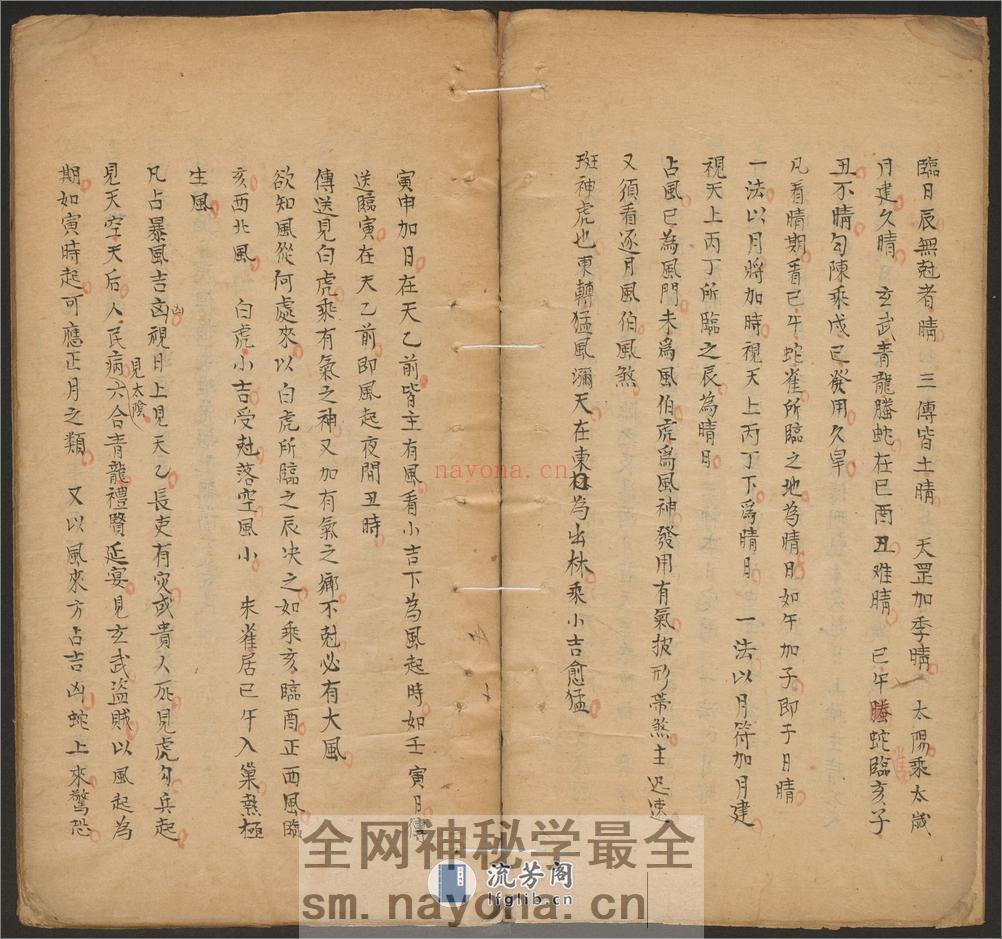 臨日辰無尅者晴 三傳皆土晴 天罡加季晴 太陽乘太歲
月建久晴 玄武青龍螣蛇在巳酉丑难晴 巳午螣蛇臨亥子
丑不晴勾陳乘戊己發用久旱
凡看晴期看巳午蛇雀所臨之地為晴日如午加子即子日晴
一法以月將加時視天上丙丁下為晴日 一法以月符加月建
視天上丙丁所臨之辰為晴日
占風巳為風門未為風伯虎為風神發用有氣披形帯煞主迟速
又須看逐月風伯風煞
斑神虎也東轉猛風瀰天在東為出林乘小吉愈猛
寅申加日在天乙前皆主有風看小吉下為風起時如壬寅月傳
送臨寅在天乙前即風起夜間丑時
傳送見白虎乘有氣之神又加有氣之鄉不尅必有大風
欲知風從何處來以白虎所臨之辰决之如乘亥臨酉正西風臨
亥西北風 白虎小吉受尅落空風小 朱雀居巳午入巢熱極
生風
凡占暴風吉凶視日上見天乙長吏有灾或貴人死見虎勾兵起
凶
見天空天后人民病六合青龍禮賢延宴見玄武盜賊以風起為
見太陰
期如寅時起可應正月之類 又以風來方占吉凶蛇上來驚恐
nayona.cn
全网神秘学最全
流芳阁
lfglib.cn
sm.nayona.cn